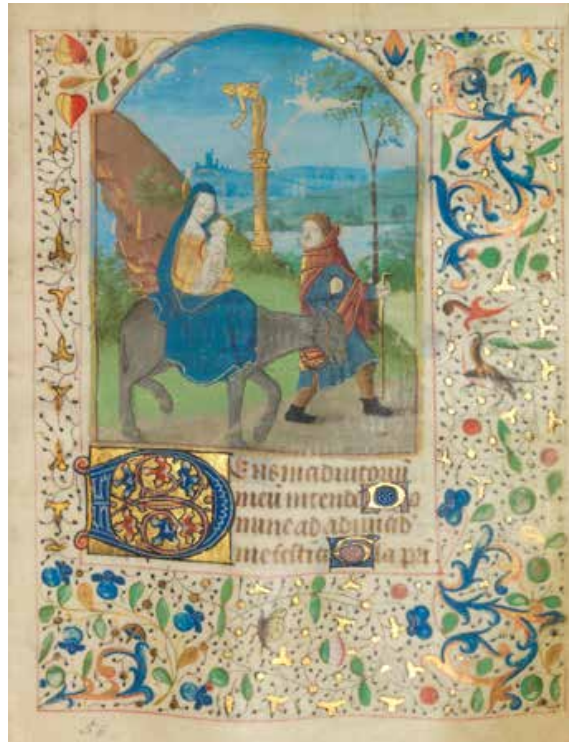 Deus in adiutoriū
meū intende Do
mine ad adiuuād
me festina Gla pri